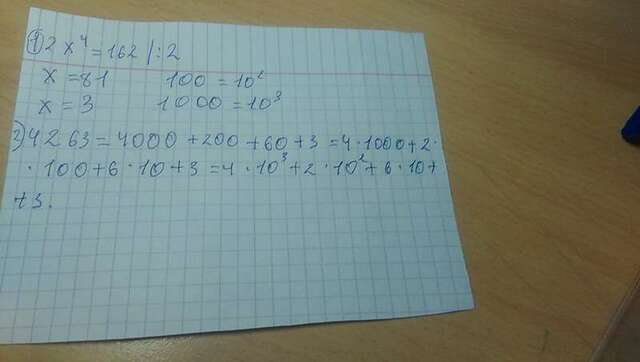 1) 2x⁴=162 /:2
x=81 100=10²
x=3 1000=10³
2) 4263=4000+200+60+3=4·1000+2·
·100+6·10+3=4·10³+2·10²+6·10+
+3.